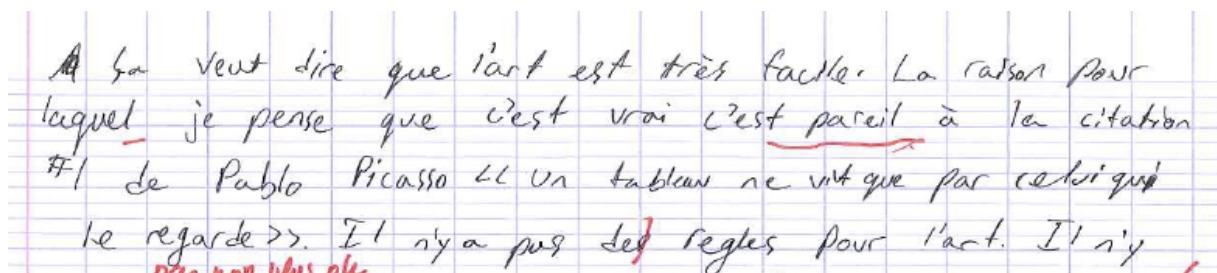 ça veut dire que l'art est très facile. La raison pour
laquel je pense que c'est vrai c'est pareil à la citation
#1 de Pablo Picasso << Un tableau ne vit que par celui qui
le regarde>>. Il n'y a pas des regles pour l'art. Il n'y
pas non plus